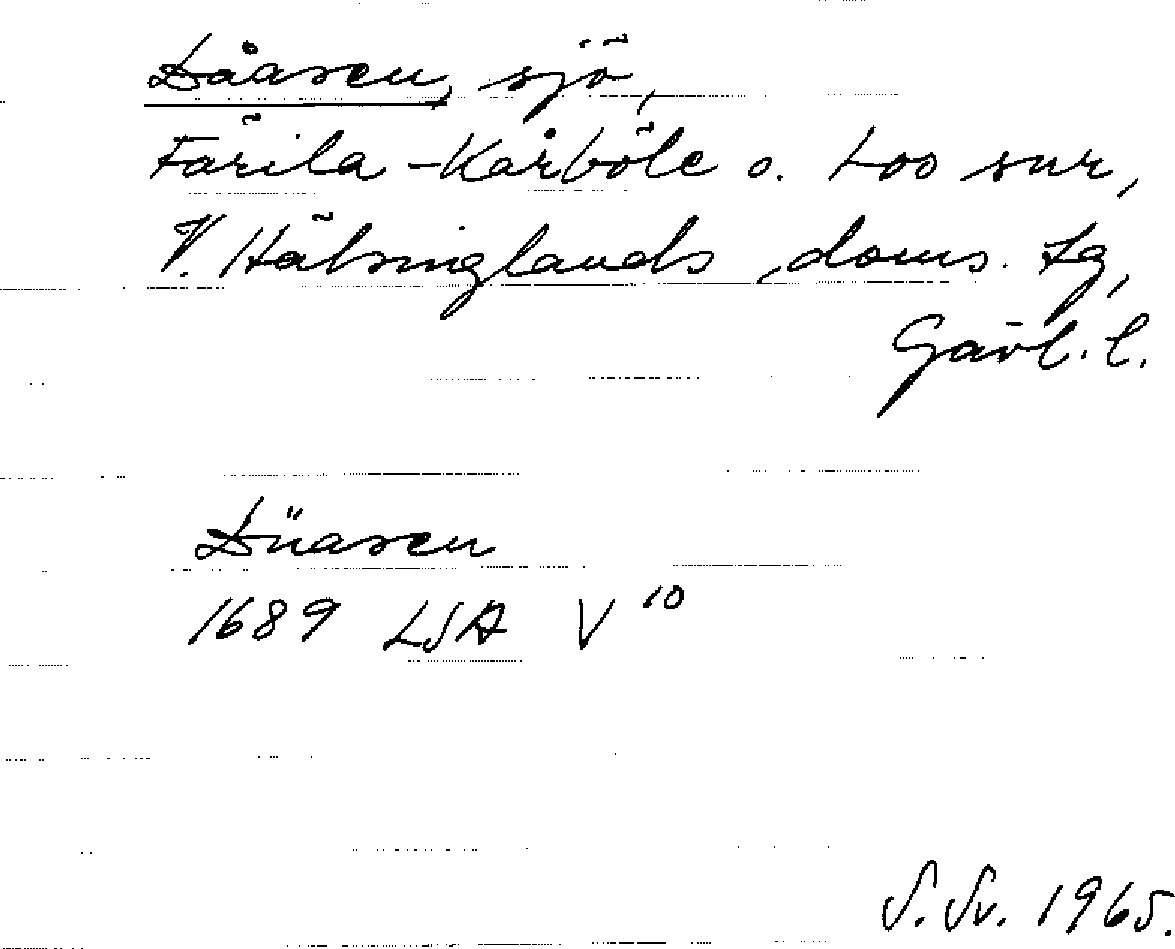 Dåasen, sjö,
Färila-Kårböle o. Loo snr,
V. Hälsinglands doms. tg,
Gävl. l.
Düasen
1689 LSA V 10
S. Sv. 1965.